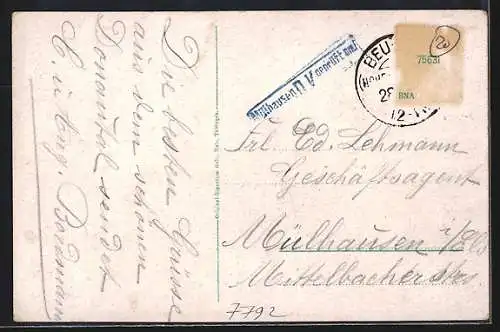 Die besten Grüsse
aus dem schönen
Donautal sendet
C. u. Eng. Bornmann
Mülhausen D.V. geprüft und
BEU
28
12-1
75631
BNA
Frl. Ed. Lehmann
Geschäftsagent
Mülhausen i/Els.
Mittelbacherstrs.
7792